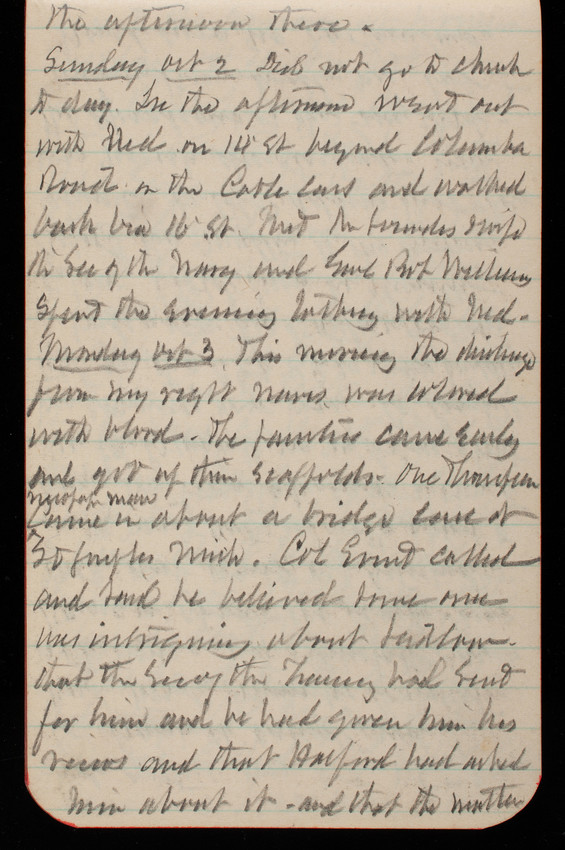 the afternoon there.
Sunday Oct 2 Did not go to church
to day. In the afternoon went out
with Ned on 14 St beyond Columbia
Road in the Cable cars and walked
back via 16 St. Met
the Sec of the Navy and Genl Robt Williams
Spent the evening talking with Ned.
Monday Oct 3 This morning the discharge
from my right nares was colored
with blood. The painters came early
and got up their scaffolds. One Thompson
newspaper man
Came in about a bridge case at
Mich. Col Ernst called
and said he believed some one
was intriguing about Ludlow.
that the Sec of the Treasury had sent
for him and he had given him his
views and that Halford had asked
him about it - and that the matter